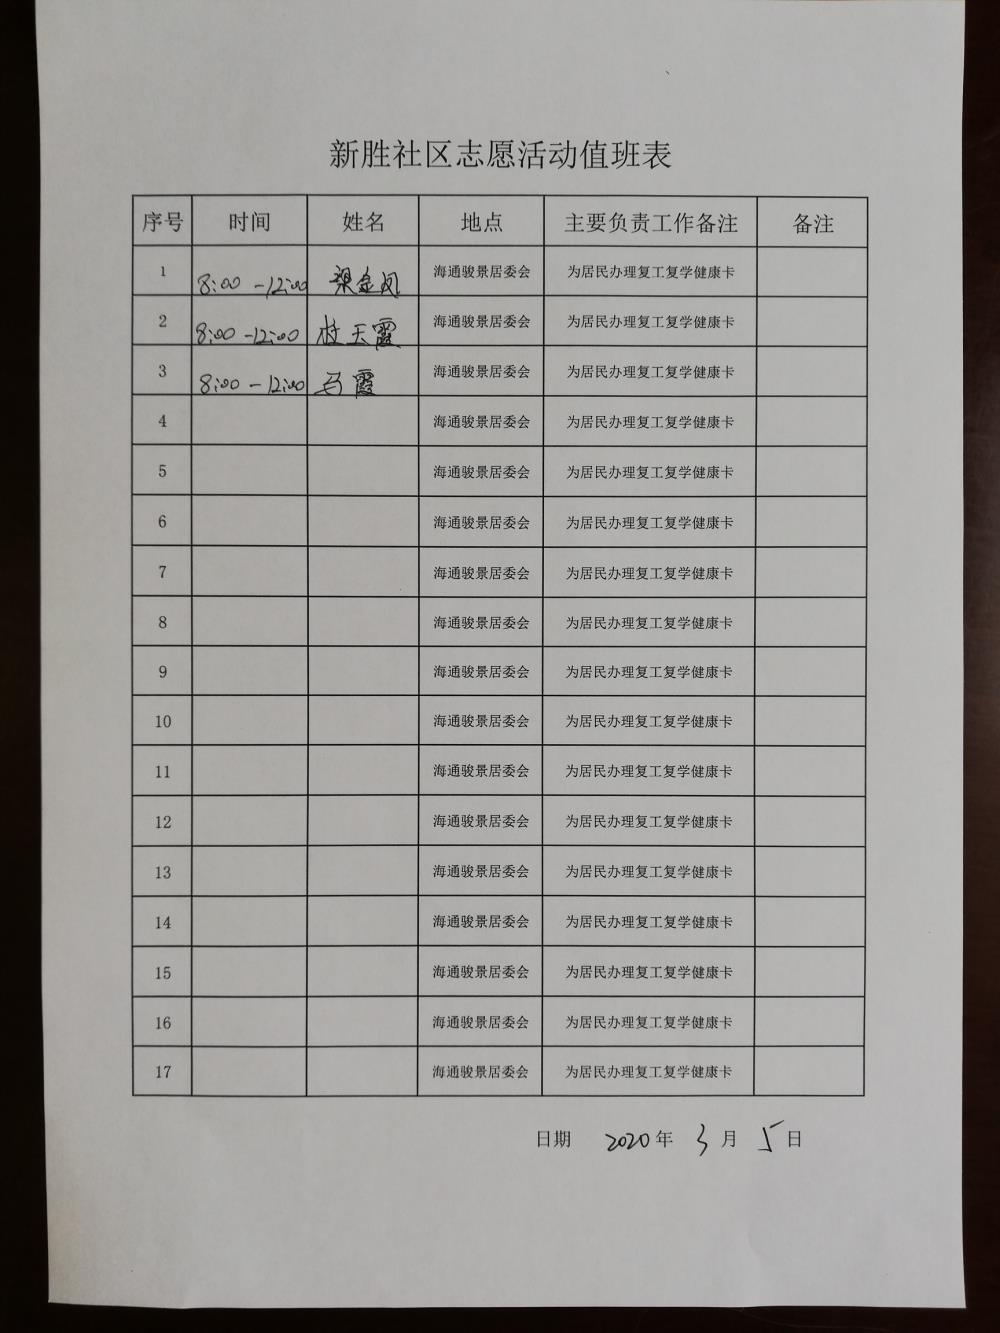 新胜社区志愿活动值班表
序号 时间 姓名 地点 主要负责工作备注 备注
1 8:00-12:00 梁金凤 海通骏景居委会 为居民办理复工复学健康卡
2 8:00-12:00 杜天霞 海通骏景居委会 为居民办理复工复学健康卡
3 8:00-12:00 马霞 海通骏景居委会 为居民办理复工复学健康卡
4 海通骏景居委会 为居民办理复工复学健康卡
5 海通骏景居委会 为居民办理复工复学健康卡
6 海通骏景居委会 为居民办理复工复学健康卡
7 海通骏景居委会 为居民办理复工复学健康卡
8 海通骏景居委会 为居民办理复工复学健康卡
9 海通骏景居委会 为居民办理复工复学健康卡
10 海通骏景居委会 为居民办理复工复学健康卡
11 海通骏景居委会 为居民办理复工复学健康卡
12 海通骏景居委会 为居民办理复工复学健康卡
13 海通骏景居委会 为居民办理复工复学健康卡
14 海通骏景居委会 为居民办理复工复学健康卡
15 海通骏景居委会 为居民办理复工复学健康卡
16 海通骏景居委会 为居民办理复工复学健康卡
17 海通骏景居委会 为居民办理复工复学健康卡
日期 2020年 3月 5日